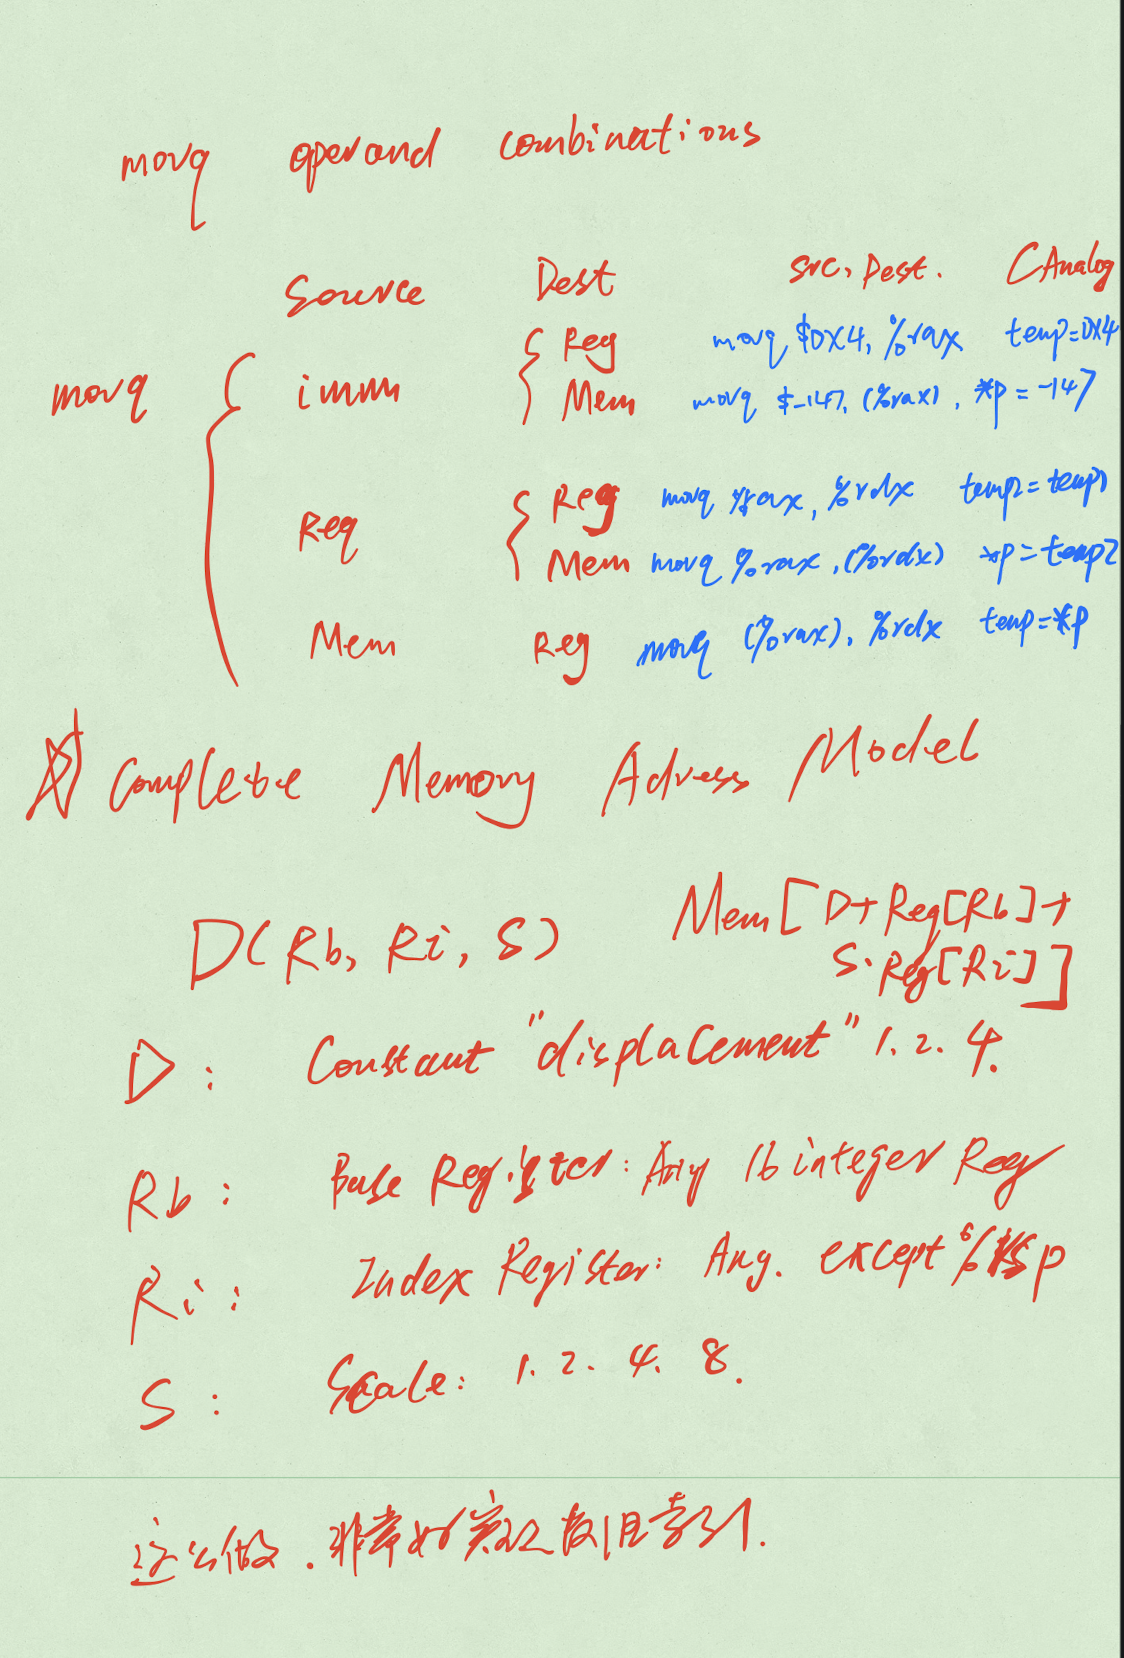 movq operand combinations
Source Dest src, Dest. C Analog
movq imm Reg movq $0X4, %rax temp=0X4
Mem movq $-147, (%rax), *p = -147
Reg Reg movq %rax, %rdx temp2=temp1
Mem movq %rax, (%rdx) *p=temp2
Mem Reg movq (%rax), %rdx temp=*p
Complete Memory Adress Model
D(Rb, Ri, S) Mem[D+Reg[Rb]+
S·Reg[Ri]]
D: Constant "displacement" 1. 2. 4.
Rb: Base Register: Any 16 integer Reg
Ri: Index Register: Any. except %rsp
S: Scale: 1. 2. 4. 8.
这么做.非常好实现数组索引.